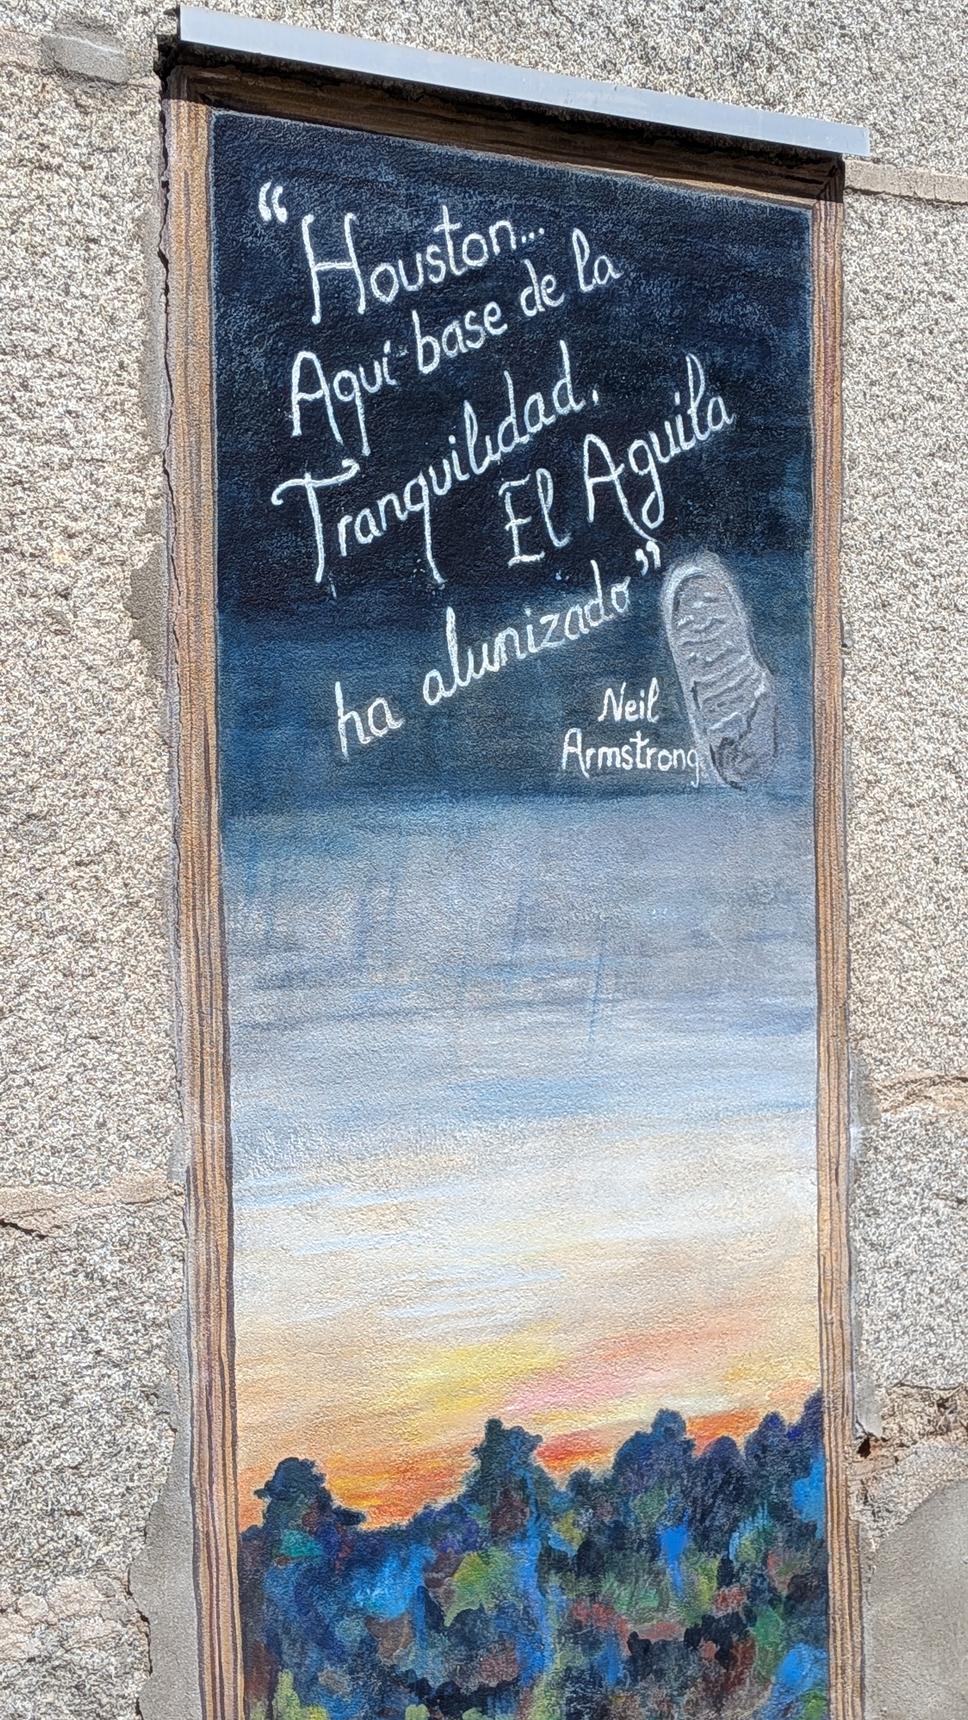 “Houston...
Aquí base de la
Tranquilidad.
El Aguila
ha alunizado”
Neil
Armstrong